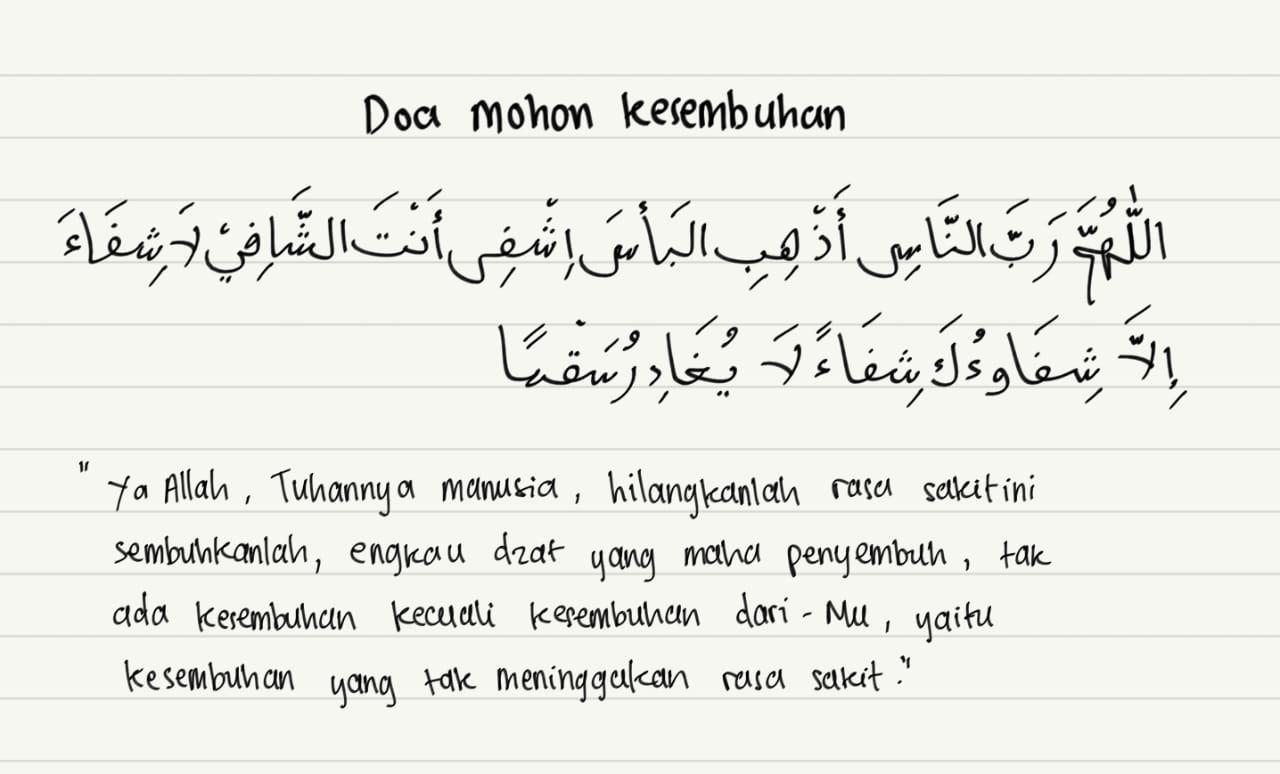 Doa mohon kesembuhan
اللّٰهُمَّ رَبَّ النَّاسِ أَذْهِبِ البَأْسَ إِشْفِى أَنْتَ الشَّافِيْ لَا شِفَاءَ
إِلاَّ شِفَاوءُكَ شِفَاءً لَا يُغَادِرُ سَقْمًا
"Ya Allah, Tuhannya manusia, hilangkanlah rasa sakit ini
sembuhkanlah, engkau dzat yang maha penyembuh, tak
ada kesembuhan kecuali kesembuhan dari-Mu, yaitu
kesembuhan yang tak meninggalkan rasa sakit."